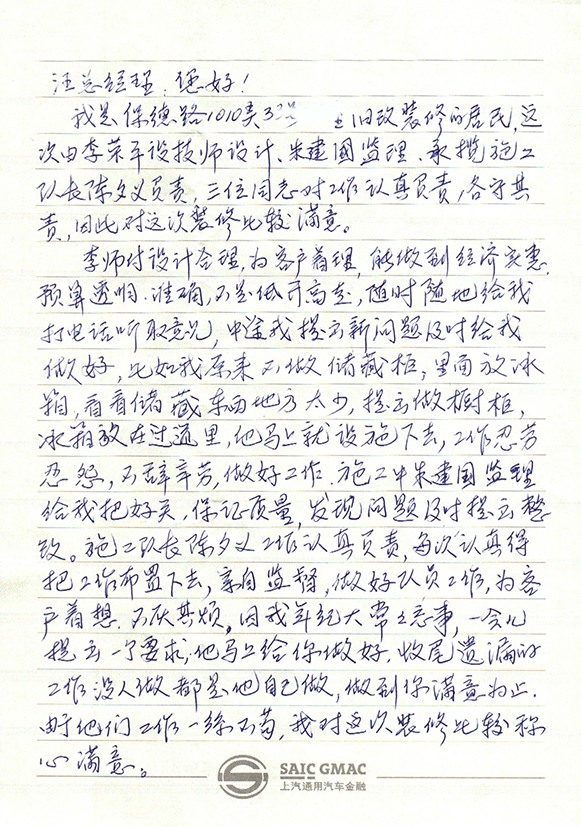 汪总经理,您好!
我是保德路1010弄33号 旧改装修的居民,这
次由李荣军设技师设计、朱建国监理、承揽施工
队长陈夕义负责,三位同志对工作认真负责,各守其
责,因此对这次装修比较满意。
李师付设计合理,为客户着理,能做到经济实惠,
预算透明、准确,不是低开高走,随时随地给我
打电话听取意见,中途我提出新问题及时给我
做好,比如我原来不做储藏柜,里面放冰
箱,看看储藏东西地方太少,提出做橱柜,
冰箱放在过道里,他马上就设施下去,工作忍劳
忍怨,不辞辛劳,做好工作.施工中朱建国监理
给我把好关,保证质量,发现问题及时提出整
改。施工队长陈夕义工作认真负责,每次认真得
把工作布置下去,亲自监督,做好队员工作,为客
户着想.不厌其烦,因我年纪大常忘事,一会儿
提出一个要求,他马上给你做好.收尾遗漏的
工作没人做都是他自己做,做到你满意为止.
由于他们工作一丝不苟,我对这次装修比较称
心满意。
SAIC GMAC
上汽通用汽车金融